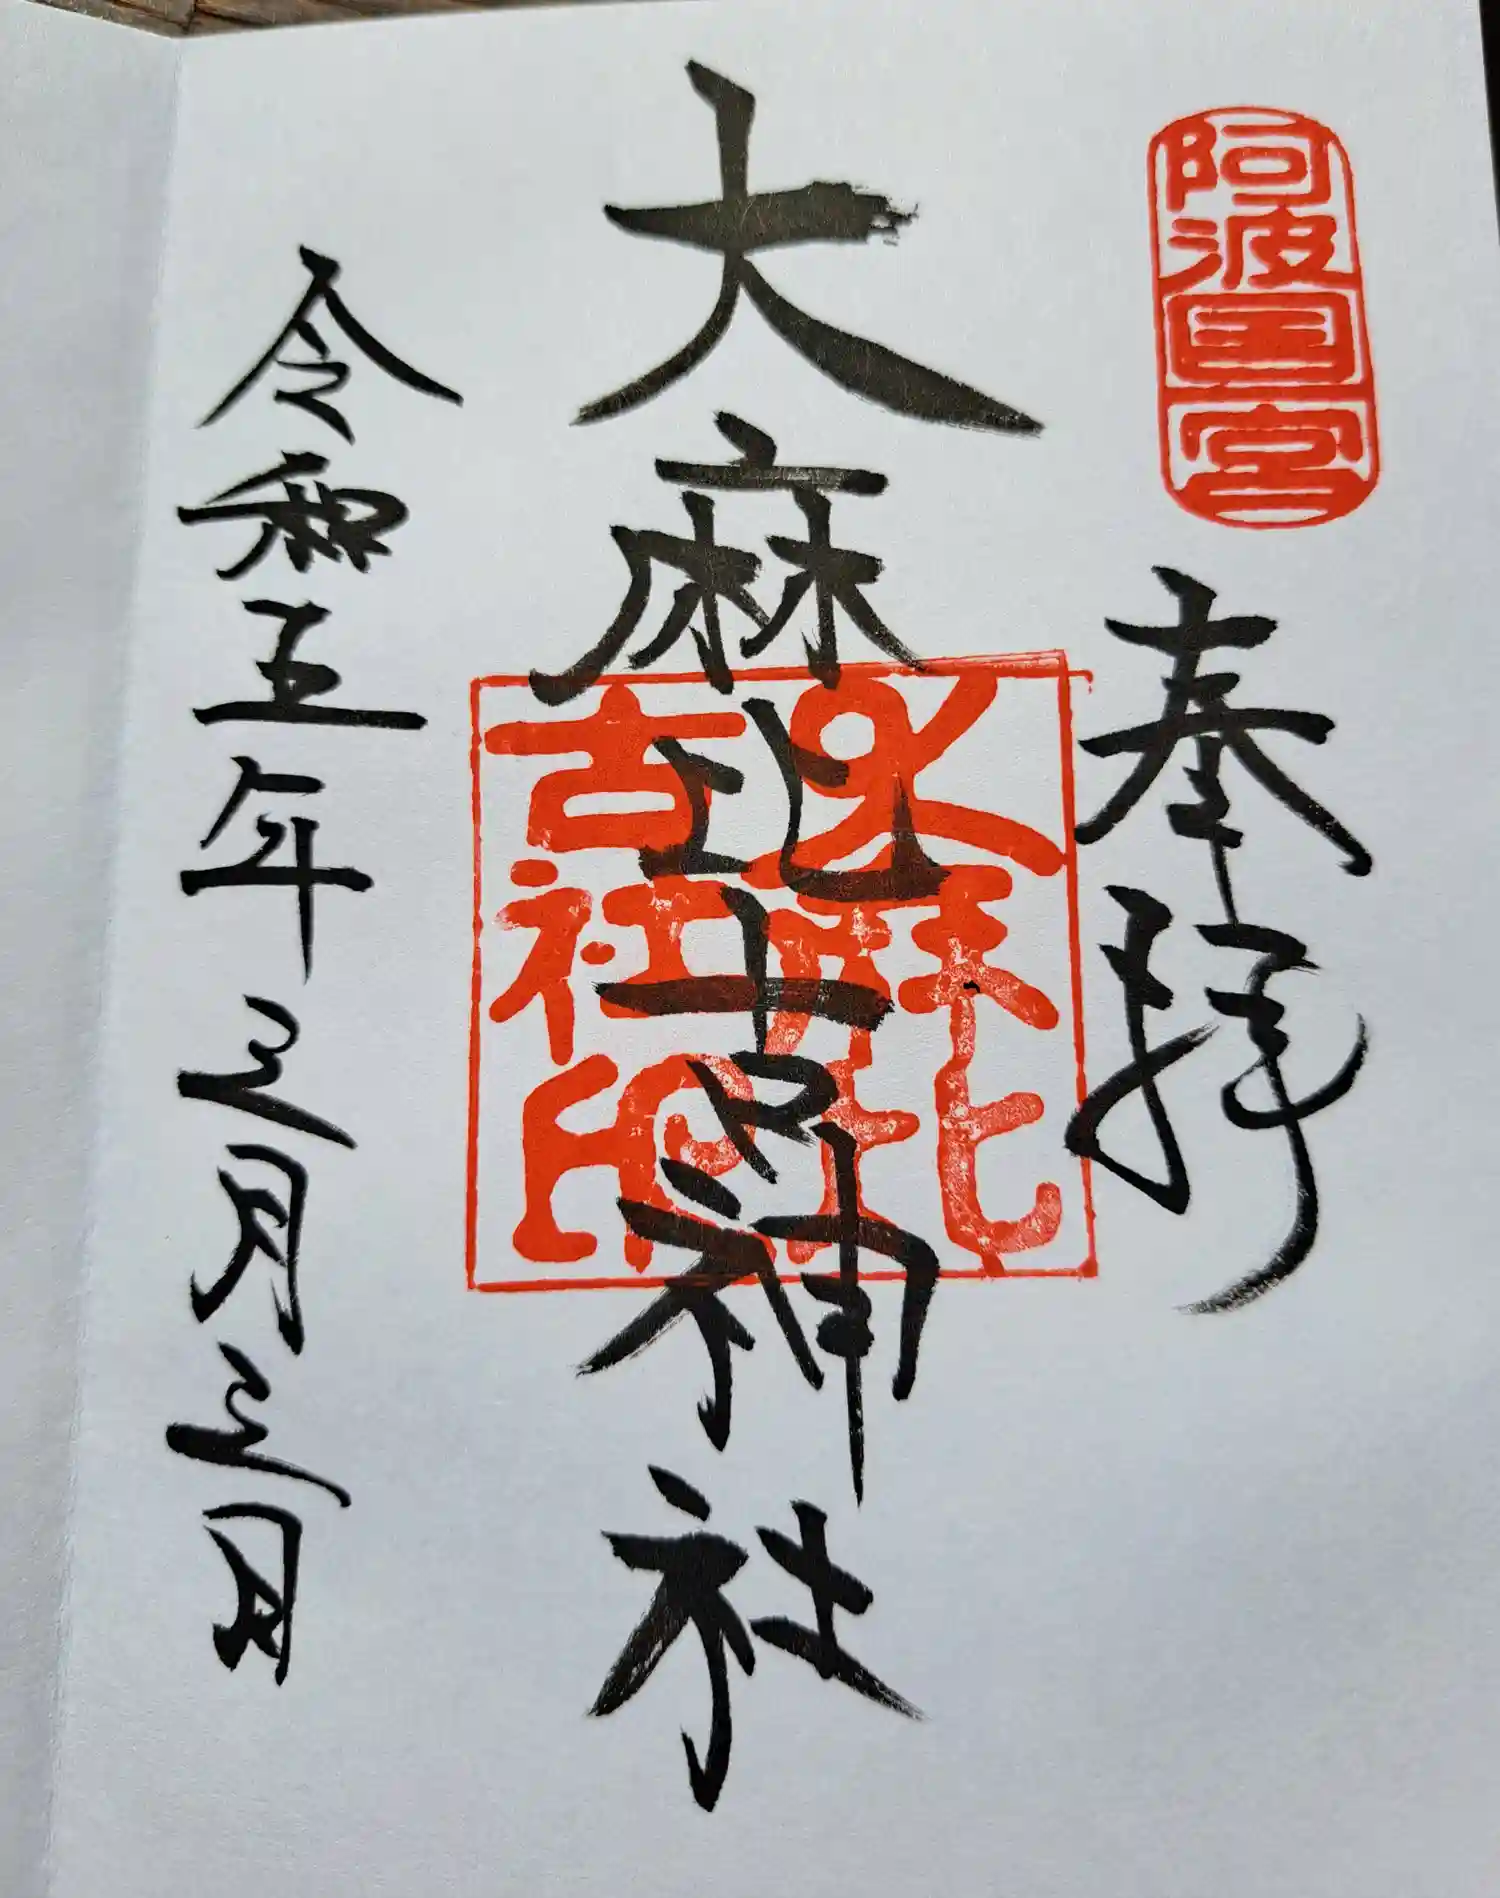 阿波国一宮
奉拝
大麻比古神社
大麻比古社印
令和五年三月三日